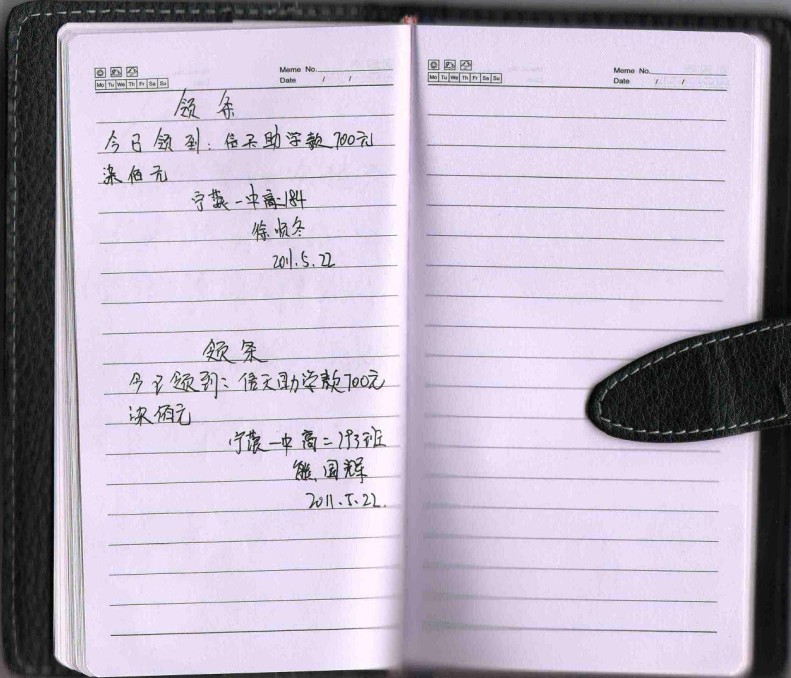 Memo No.
Mo Tu We Th Fr Sa Su
Date / /
领条
今日领到：信天助学款700元
柒佰元
宁蒗一中高二184
徐顺冬
2011.5.22
领条
今日领到：信天助学款700元
柒佰元
宁蒗一中高二193班
熊国辉
2011.5.22.
Memo No.
Mo Tu We Th Fr Sa Su
Date / /